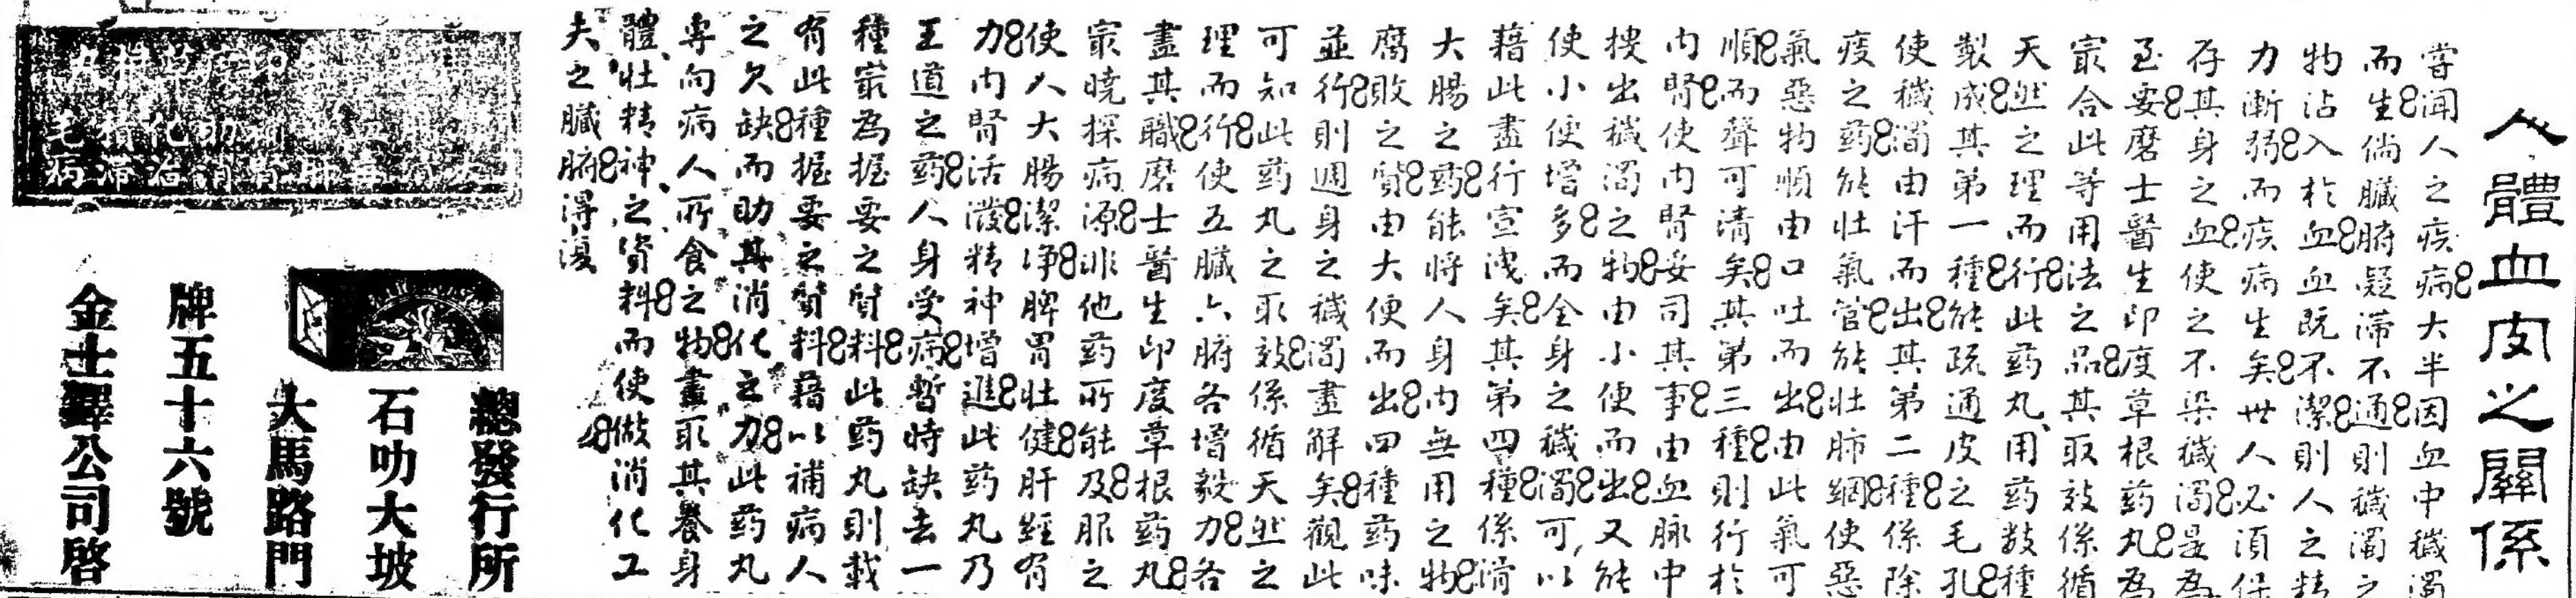 人體血肉之關係
嘗聞人之疾病大半因血中穢濁
而生倘臟腑凝滯不通則穢濁之
物沾入於血血既不潔則人之精
力漸弱而疾病生矣世人必須保
存其身之血使之不染穢濁是為
至要磨士醫生印度草根药丸為
㝡合此等用法之品其取效係循
天然之理而行此药丸用药数種
製成其第一種能疏通皮之毛孔
使穢濁由汗而出其第二種係除
疲之药能壯氣管能壯肺綱使惡
氣惡物順由口吐而出由此氣可
順而聲可清矣其第三種則行於
內腎使內腎妥司其事由血脉中
搜出穢濁之物由小便而出又能
使小便增多而全身之穢濁可以
藉此盡行宣洩矣其第四種係滑
大腸之药能將人身內無用之物
腐敗之質由大便而出四種药味
並行則週身之穢濁盡解矣觀此
可知此药丸之取效係循天然之
理而行使五臟六腑各增毅力各
盡其職磨士醫生印度草根药丸
㝡曉探病源非他药所能及服之
使人大腸潔淨脾胃壯健肝經有
力內腎活潑精神增進此药丸乃
王道之药人身受病暫時缺去一
種㝡為握要之質料此药丸則載
有此種握要之質料藉以補病人
之欠缺而助其消化之力此药丸
專向病人所食之物盡取其養身
體壯精神之資料而使做消化工
夫之臟腑得復
總發行所
石叻大坡
大馬路門
牌五十六號
金士鐸公司啓